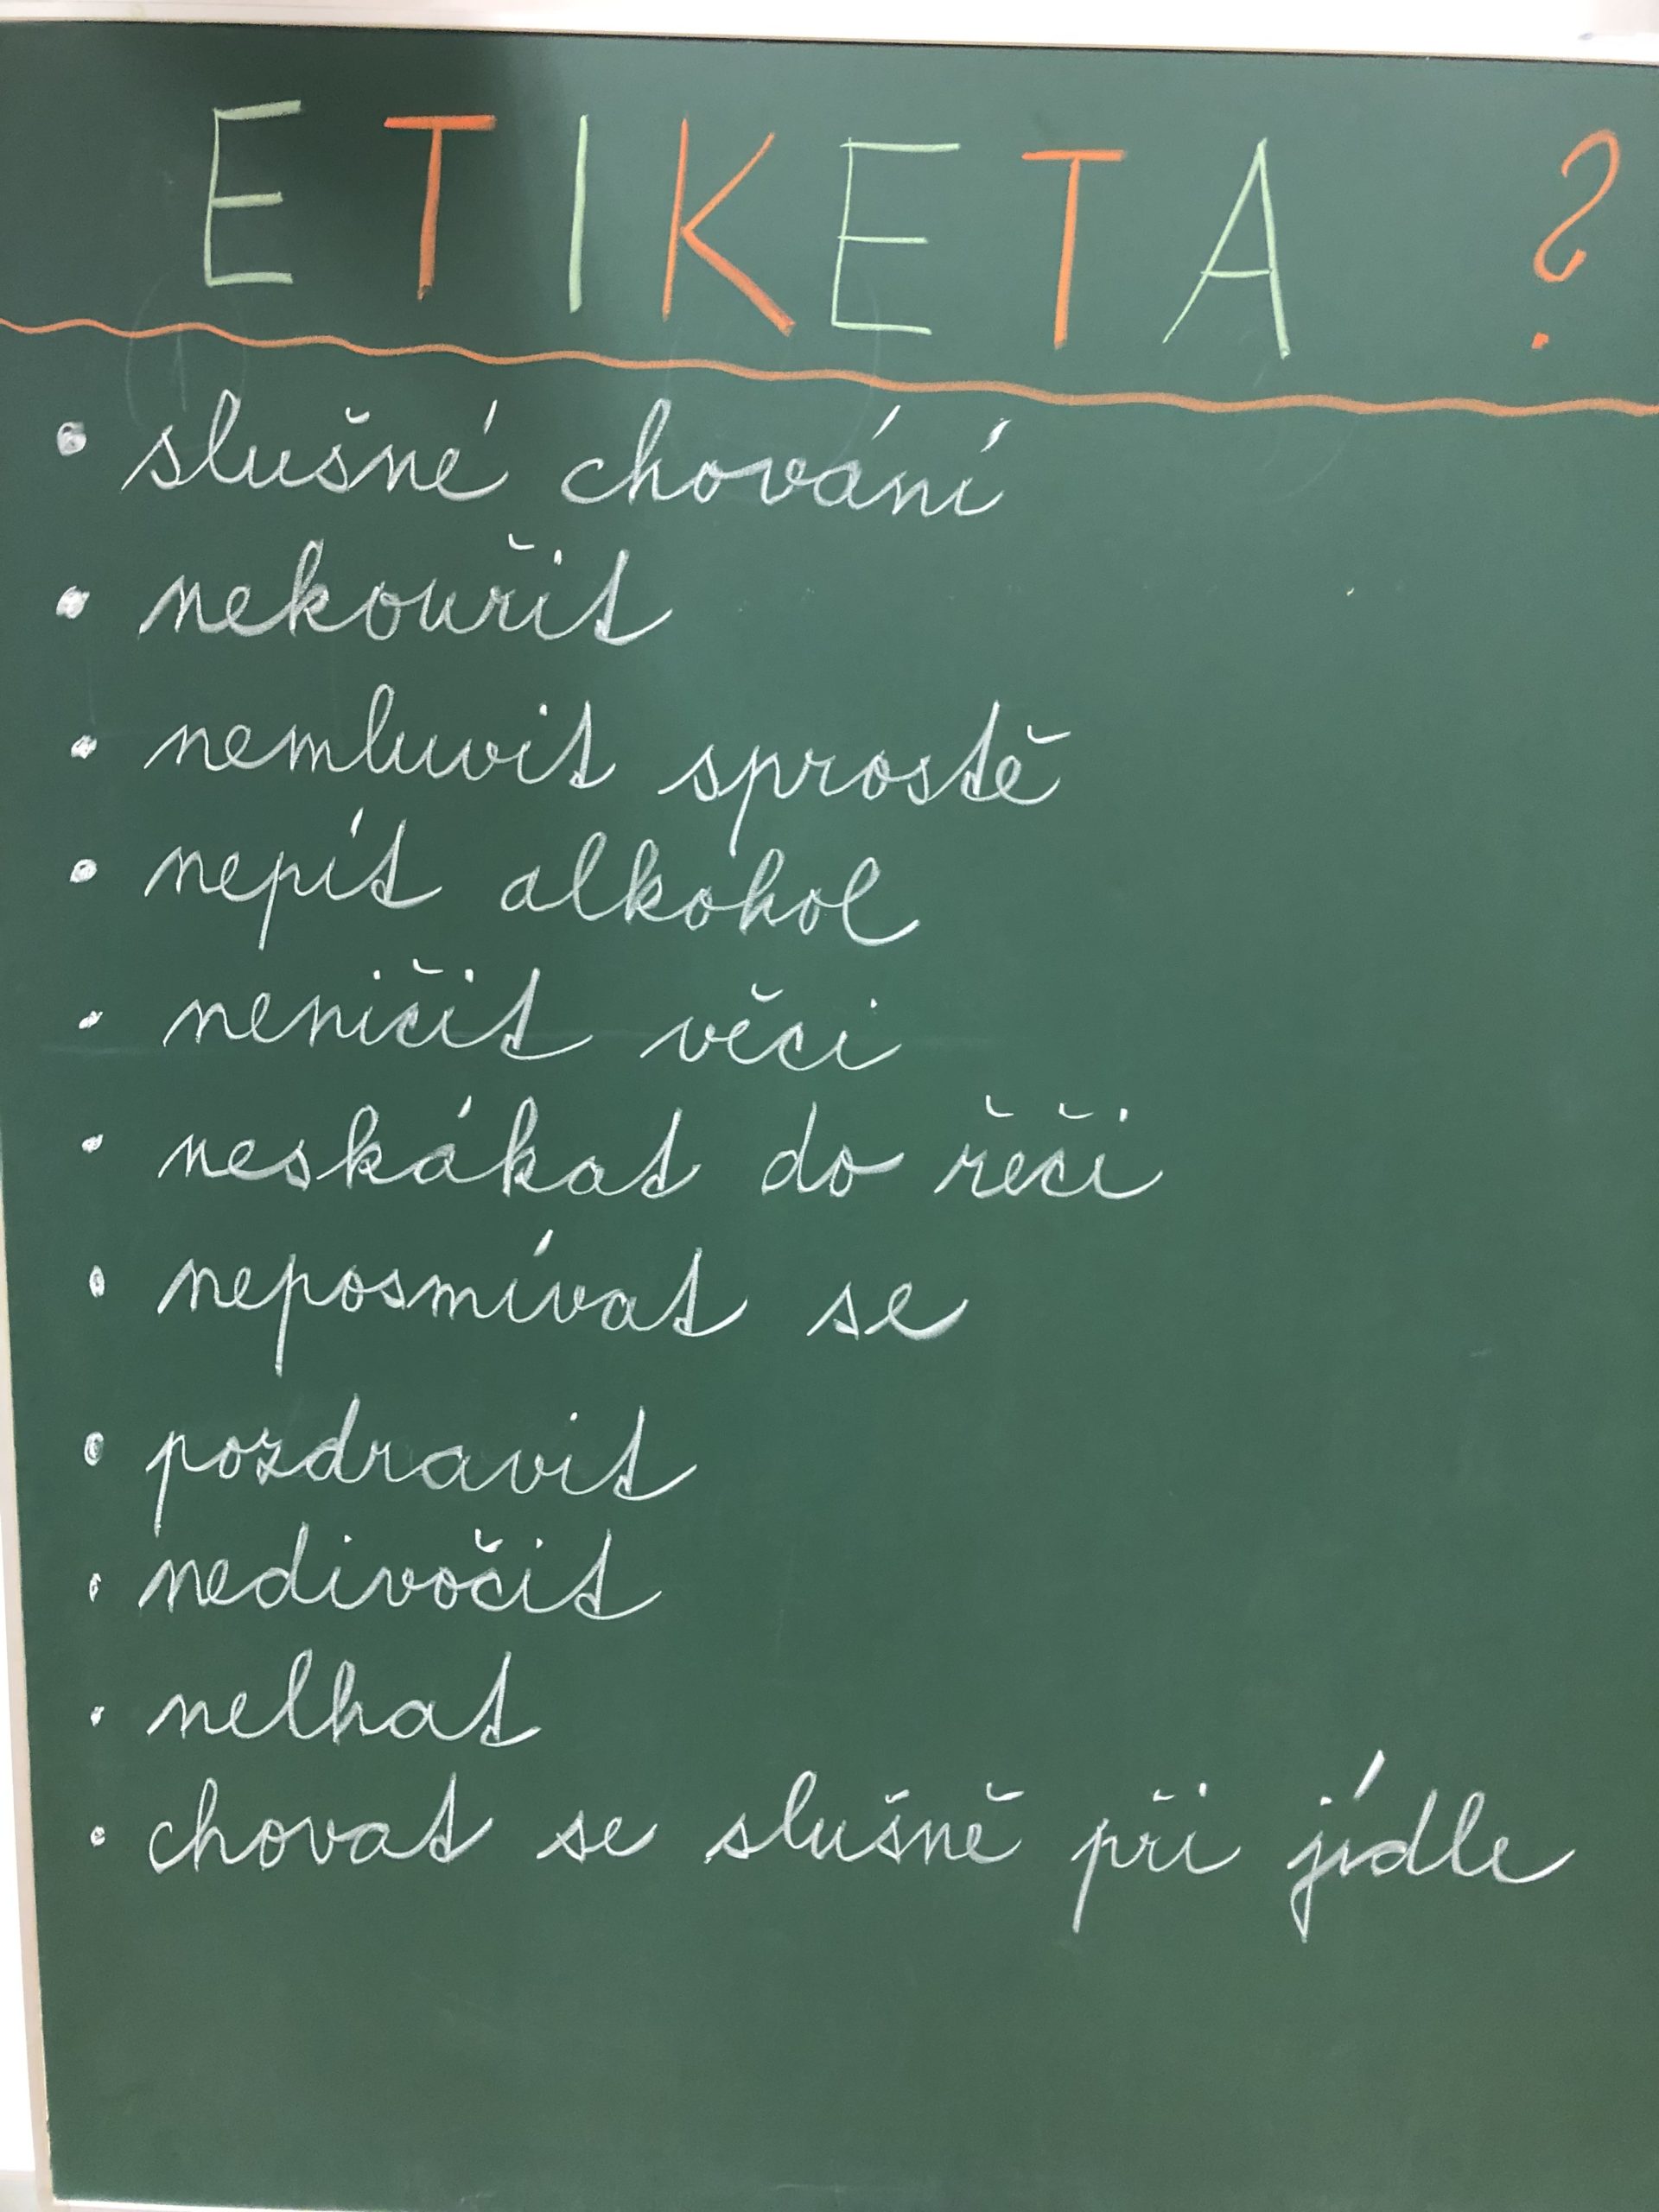 ETIKETA ?
• slušné chování
• nekouřit
• nemluvit sprostě
• nepít alkohol
• neničit věci
• neskákat do řeči
• neposmívat se
• pozdravit
• nedivočit
• nelhat
• chovat se slušně při jídle